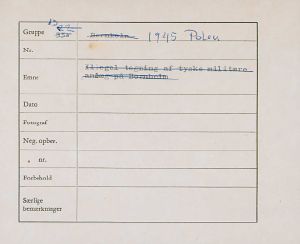 Gruppe Bornholm 1945 Polen
Nr.
Emne Illegal tegning af tyske militære
anlæg på Bornholm
Dato
Fotograf
Neg. opbev.
„ nr.
Forbehold
Særlige
bemærkninger